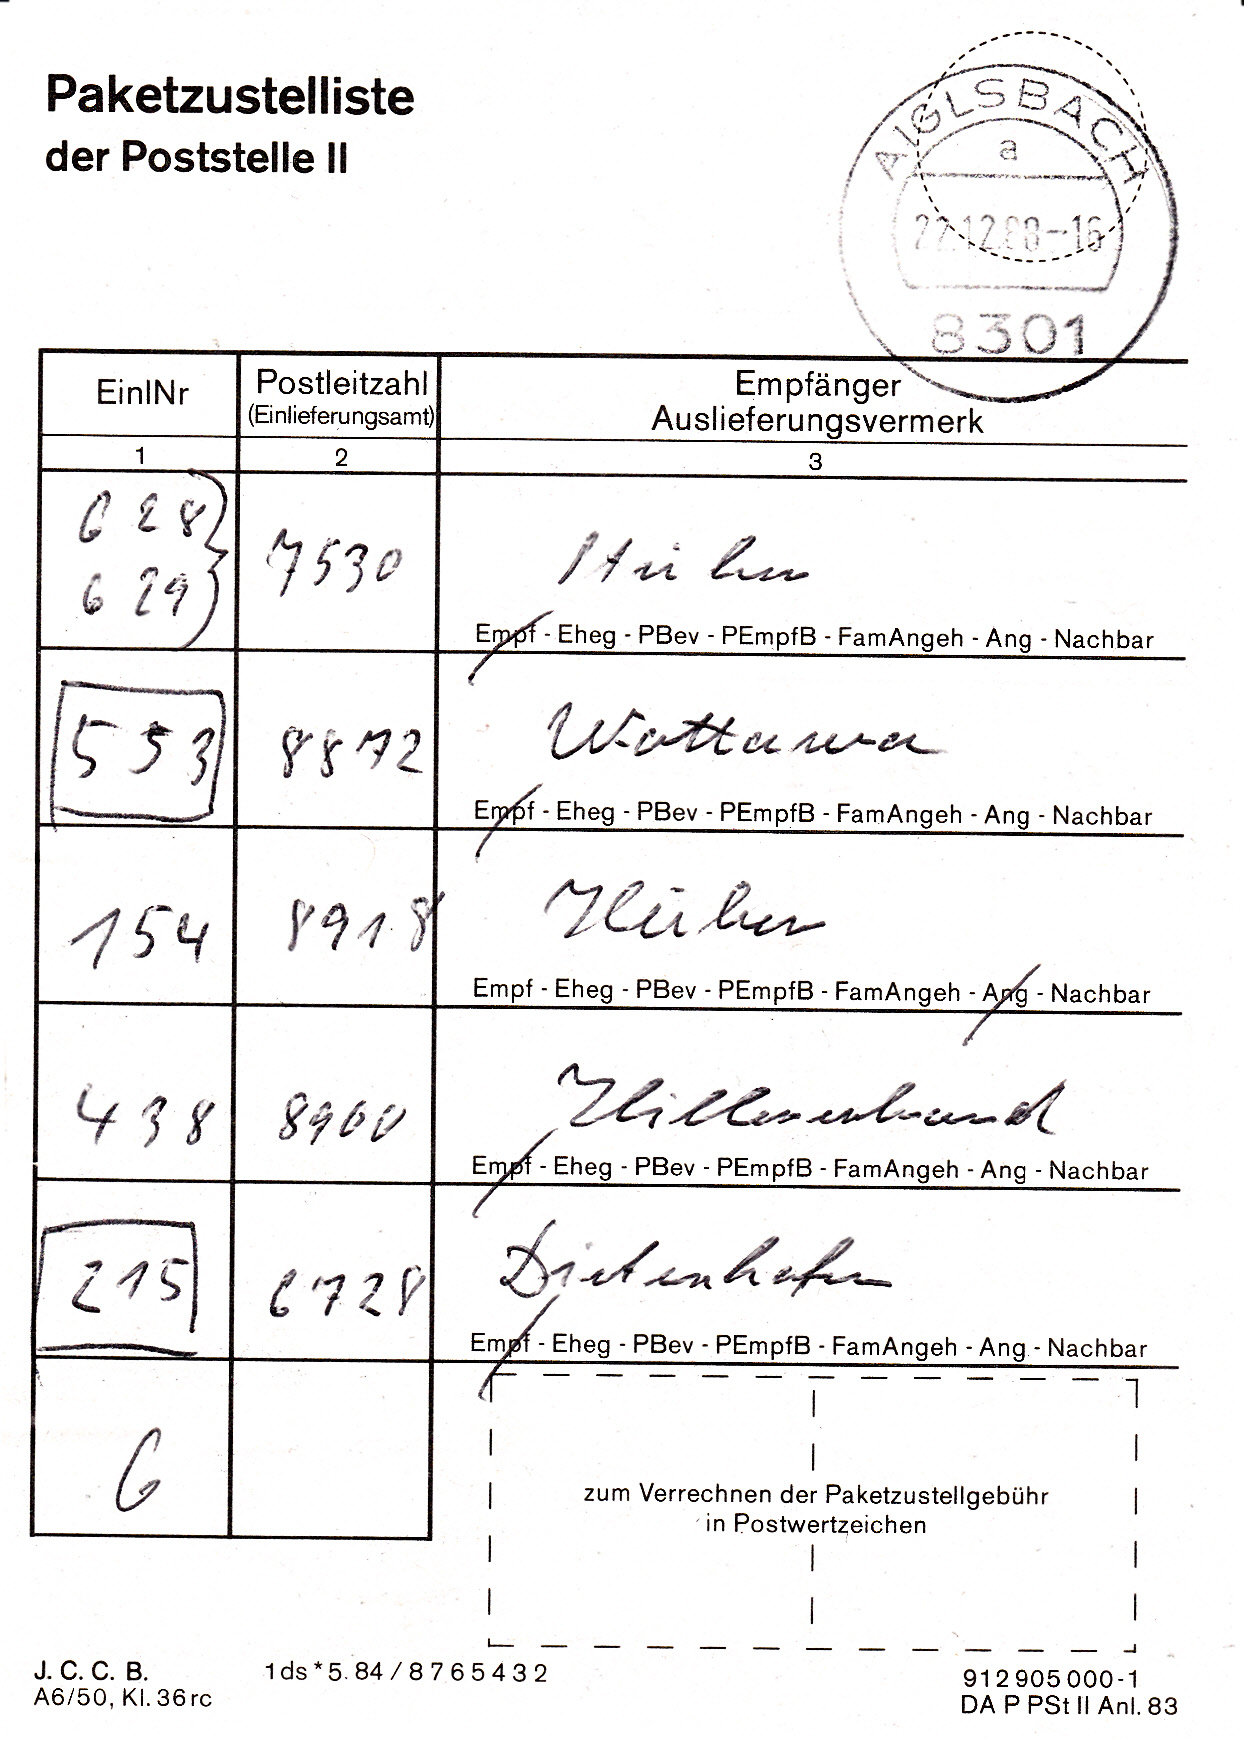 Paketzustelliste
der Poststelle II
AIGLSBACH
a
22.12.88-16
8301
EinlNr
Postleitzahl
(Einlieferungsamt)
Empfänger
Auslieferungsvermerk
1
2
3
628
629
7530
Empf - Eheg - PBev - PEmpfB - FamAngeh - Ang - Nachbar
553
8872
Wattawa
Empf - Eheg - PBev - PEmpfB - FamAngeh - Ang - Nachbar
154
8918
Huber
Empf - Eheg - PBev - PEmpfB - FamAngeh - Ang - Nachbar
438
8900
Hillenbrand
Empf - Eheg - PBev - PEmpfB - FamAngeh - Ang - Nachbar
215
6728
Dietenhofer
Empf - Eheg - PBev - PEmpfB - FamAngeh - Ang - Nachbar
6
zum Verrechnen der Paketzustellgebühr
in Postwertzeichen
J. C. C. B.
A6/50, Kl. 36 rc
1ds*5.84/8765432
912 905 000-1
DA P PSt II Anl. 83